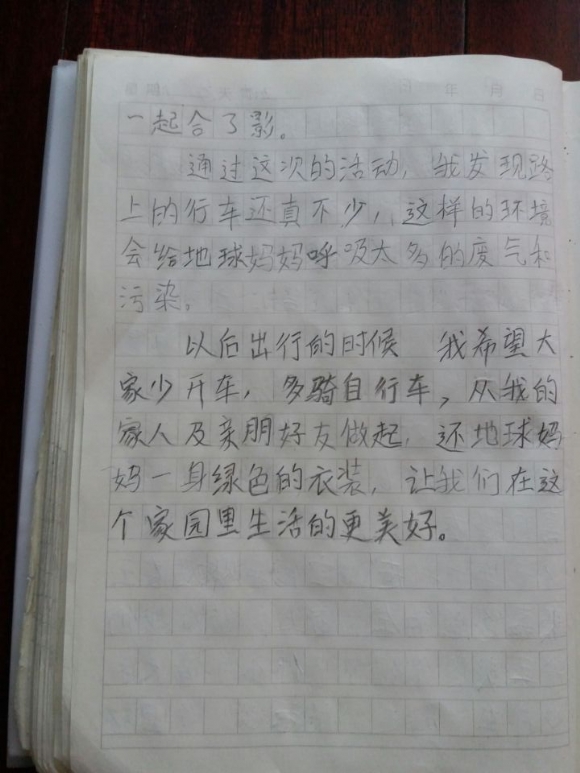 星期 天气 年 月 日
一起合了影。
通过这次的活动，我发现路
上的行车还真不少，这样的环境
会给地球妈妈呼吸太多的废气和
污染。
以后出行的时候 我希望大
家少开车，多骑自行车，从我的
家人及亲朋好友做起，还地球妈
妈一身绿色的衣装，让我们在这
个家园里生活的更美好。